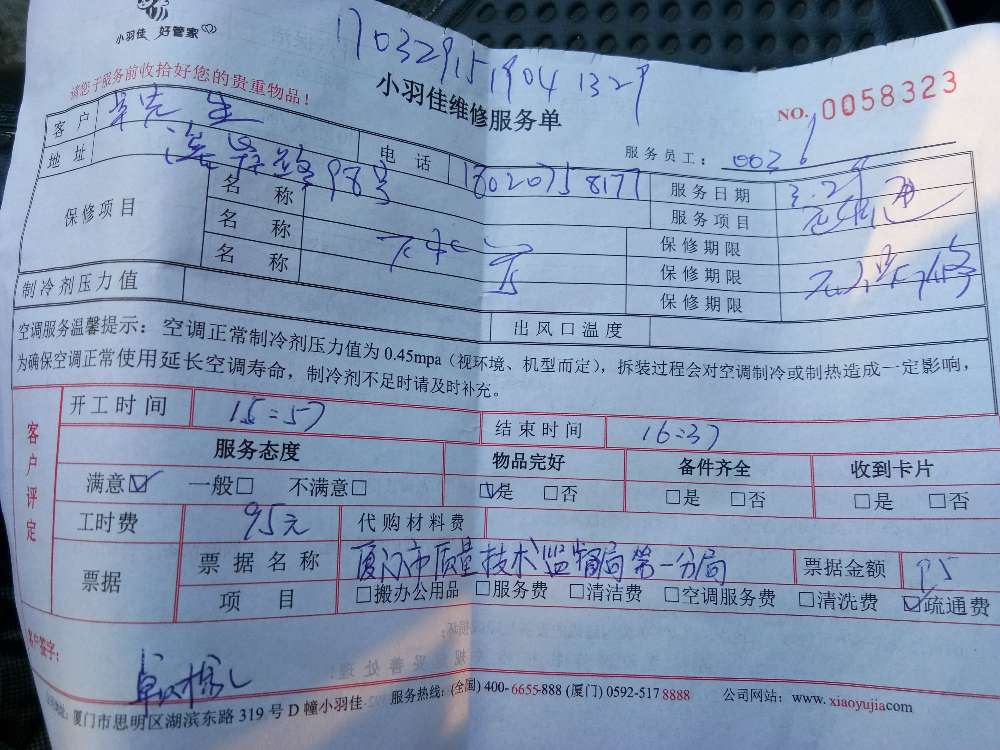 小羽佳 好管家
1703291519041329
请您于服务前收拾好您的贵重物品！
小羽佳维修服务单
NO. 0058323
服务员工：
客户 先生
地址 98号 电话 18020758177 服务日期 3.29
保修项目 名称 服务项目
名称 保修期限
名称 保修期限
保修期限
制冷剂压力值 出风口温度
空调服务温馨提示：空调正常制冷剂压力值为0.45mpa（视环境、机型而定），拆装过程会对空调制冷或制热造成一定影响，
为确保空调正常使用延长空调寿命，制冷剂不足时请及时补充。
客户评定
开工时间 15:57 结束时间 16:37
服务态度 物品完好 备件齐全 收到卡片
满意☑ 一般□ 不满意□ ☑是 □否 □是 □否 □是 □否
工时费 95元 代购材料费
票据 票据名称 厦门市质量技术监督局第一分局 票据金额 95
项目 □搬办公用品 □服务费 □清洁费 □空调服务费 □清洗费 ☑疏通费
客户签字：
厦门市思明区湖滨东路319号D幢小羽佳 服务热线：(全国) 400-6655-888 (厦门) 0592-5178888 公司网站：www.xiaoyujia.com